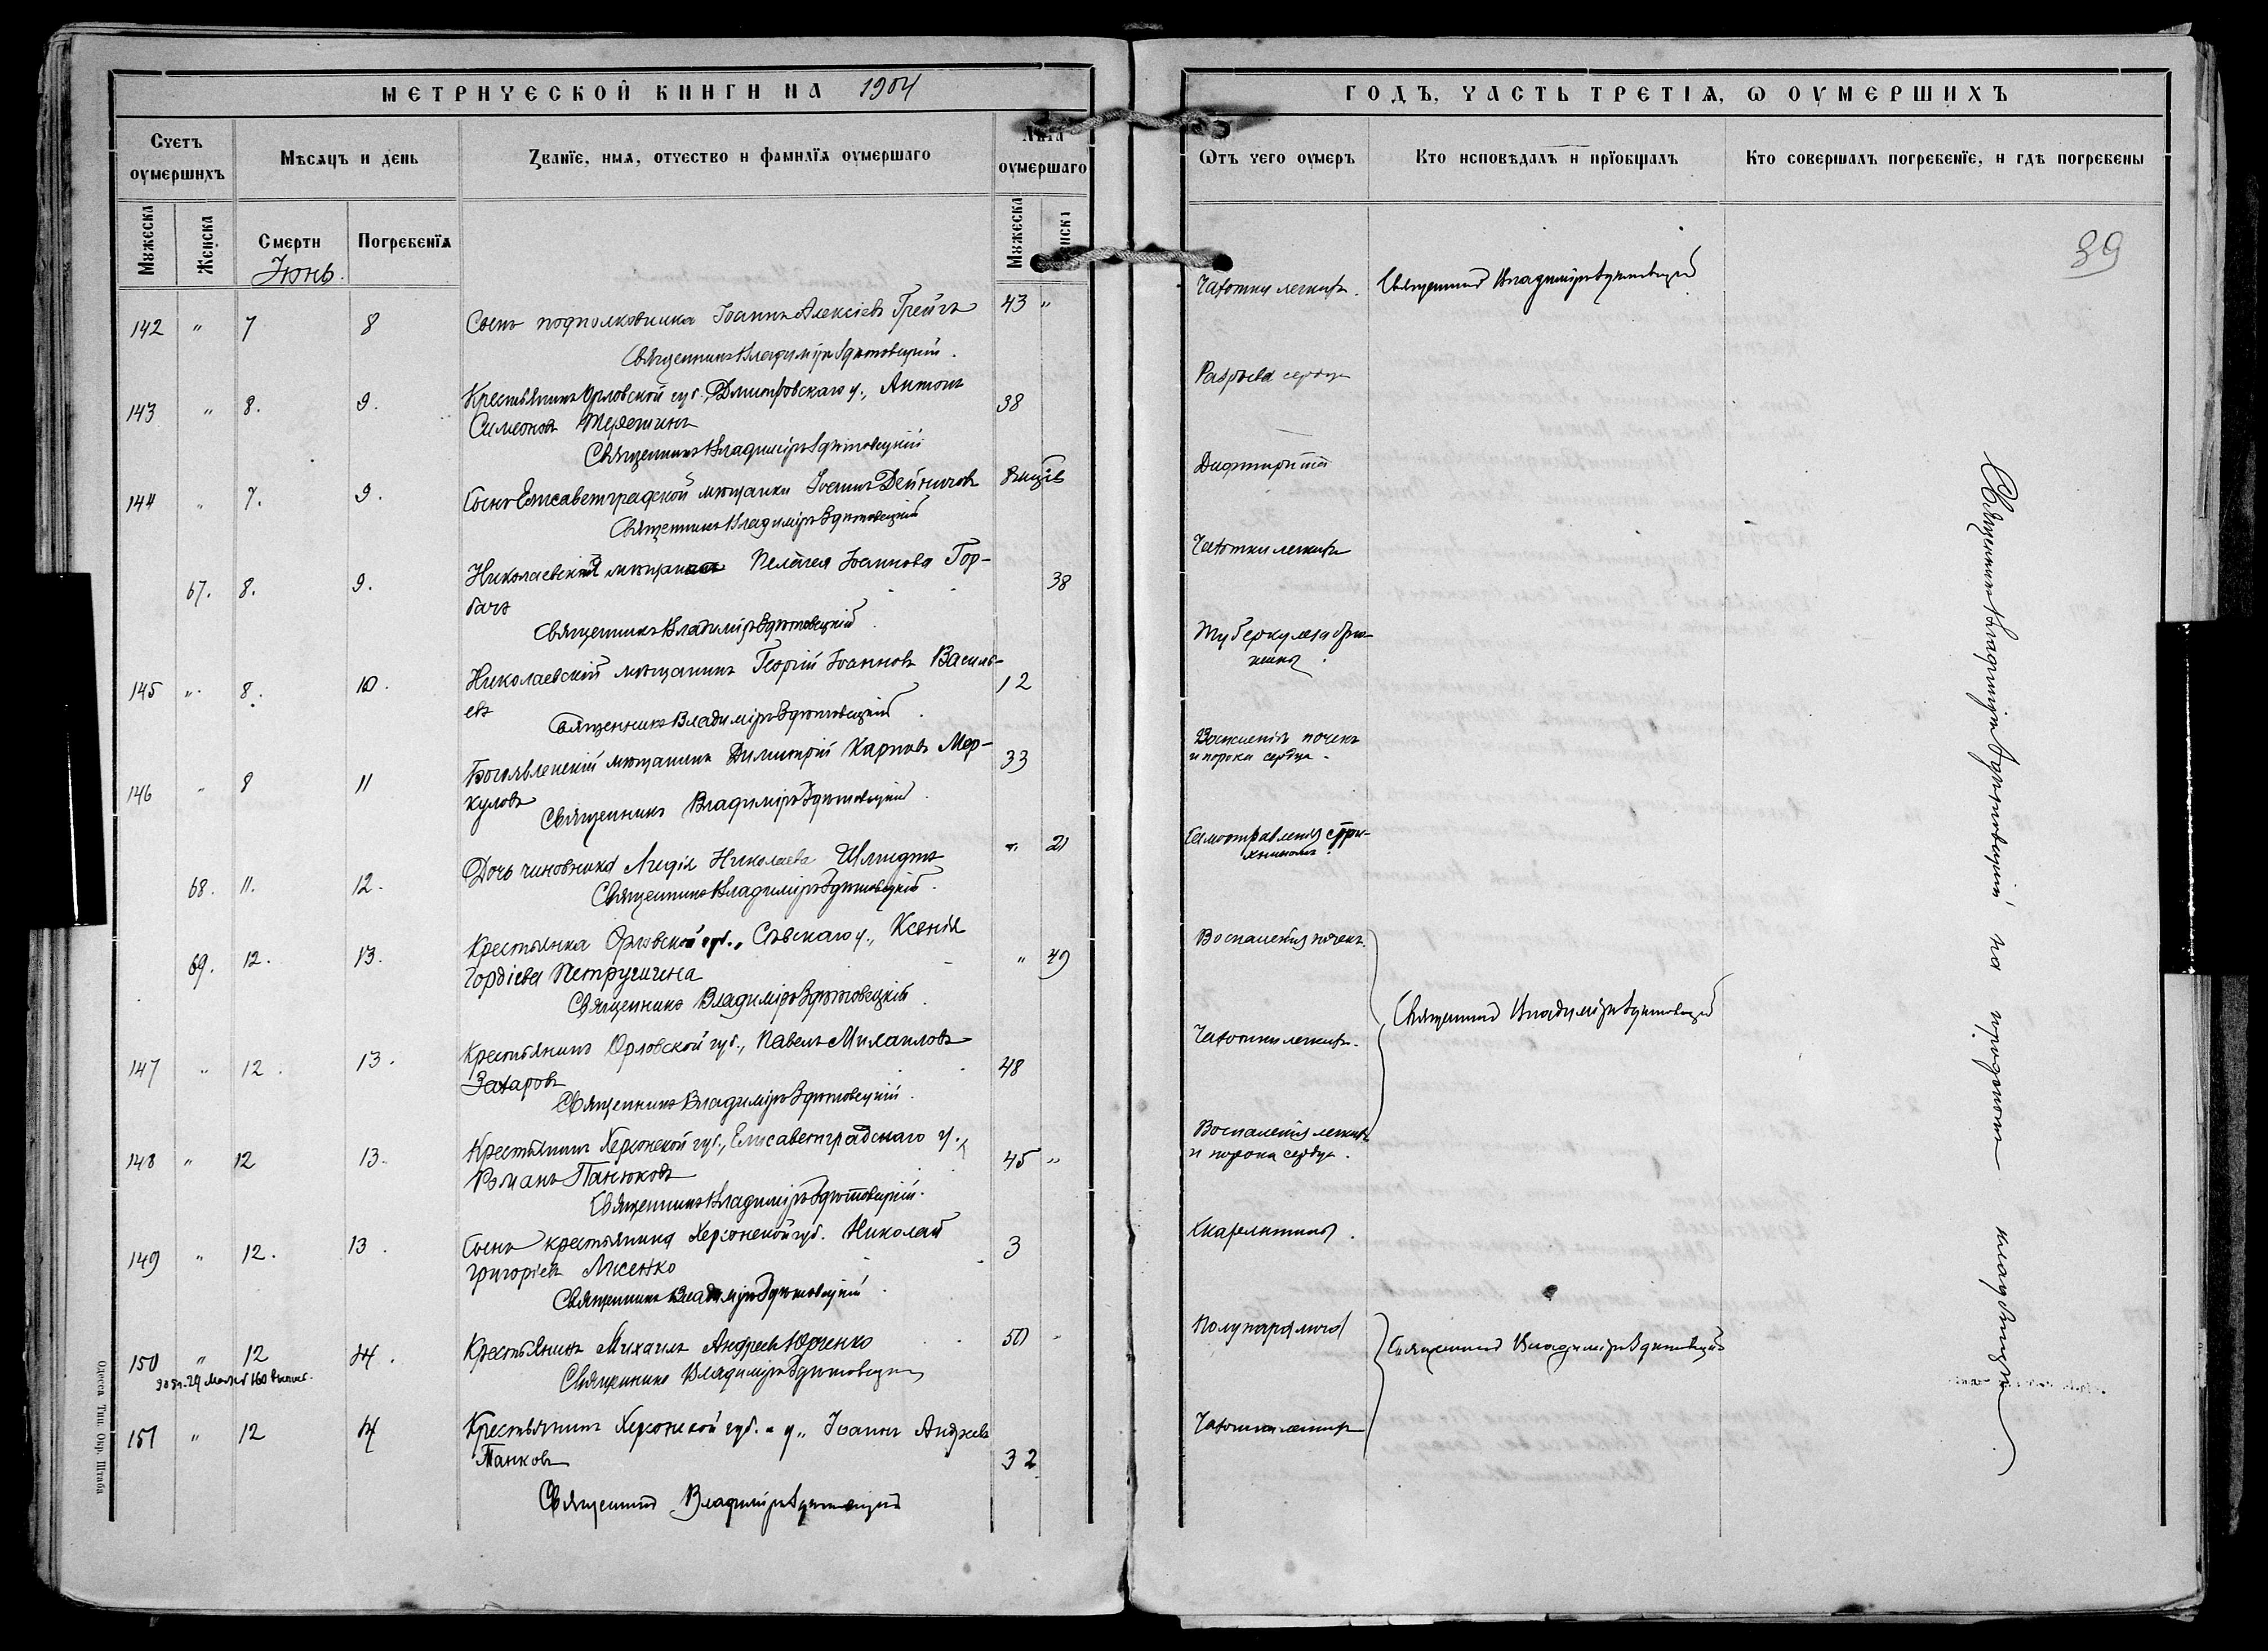 МЕТРИЧЕСКОЙ КНИГИ НА 1904
Счетъ оумершихъ
Мѣсяцъ и день
Званїе, имя, отчество и фамилїя оумершаго
Лѣта оумершаго
Мужеска
Женска
Смерти
Погребенїя
Мужеска
Іюнь.
142 " 7 8 Сынъ подполковника Іоаннъ Алексіевъ Грейгъ 43 "
Священникъ Владиміръ
143 " 8. 9. Крестьянинъ Орловской губ., Дмитровскаго у., Антонъ
Симеоновъ 38
Священникъ Владиміръ
144 " 7. 9. Сынъ Елисаветградской мѣщанки Іоаннъ
Священникъ Владиміръ
67. 8. 9. Николаевская Пелагея Іоаннова Гор-
бачъ 38
Священникъ Владиміръ
145 " 8. 10. Николаевскій мѣщанинъ Георгій Іоанновъ Василь-
евъ 12
Священникъ Владиміръ
146 " 8 11 Богоявленскій мѣщанинъ Димитрій Карповъ Мер-
куловъ 33
Священникъ Владиміръ
68. 11. 12. Дочь чиновника Лидія Николаева Шмидтъ " 21
Священникъ Владиміръ
69. 12. 13. Крестьянка Орловской губ., Сѣвскаго у., Ксенія
Гордіева Петрушина " 49
Священникъ Владиміръ
147 " 12. 13. Крестьянинъ Орловской губ., Павелъ Михаиловъ
Захаровъ 48
Священникъ Владиміръ
148 " 12 13. Крестьянинъ Херсонской губ., Елисаветградскаго у.,
Романъ Панюковъ 45 "
Священникъ Владиміръ
149 " 12. 13. Сынъ крестьянина Херсонской губ. Николай
Григоріевъ Лисенко 3
Священникъ Владиміръ
150 " 12 14. Крестьянинъ Михаилъ Андреевъ Юрченко 50 "
Священникъ Владиміръ
151 " 12 14 Крестьянинъ Херсонской губ. и у., Іоаннъ Андреевъ
Панковъ 32
Священникъ Владиміръ
Одесса Тип. Окр. Штаба
ГОДЪ, ЧАСТЬ ТРЕТІЯ, О ОУМЕРШИХЪ
Отъ чего оумеръ
Кто исповѣдалъ и прїобщалъ
Кто совершалъ погребенїе, и гдѣ погребены
39
Чахотки легкихъ. Священникъ Владиміръ
Разрыва сердца
Дифтерита
Чахотки легкихъ
Туберкулеза брю-
шины.
Воспаленія почекъ
и порока сердца.
Самоотравленія стри-
хниномъ.
Воспаленія почекъ.
Священникъ Владиміръ
Чахотки легкихъ.
Воспаленія легкихъ
и порока сердца.
Скарлатины.
Полупаралича
Священникъ Владиміръ
Чахотки легкихъ
Священникъ Владиміръ на кладбищѣ